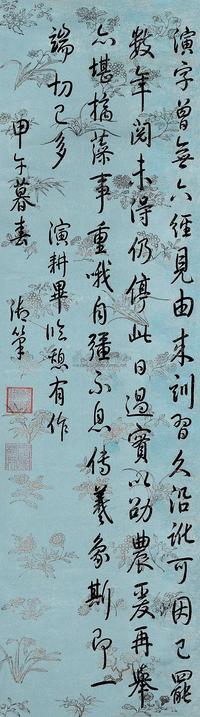 演字曾無六經見由来訓習久沿訛可因已罷
數年閱未得仍停此日過實以劭農爰再舉
亦堪摛藻事重哦自彊不息傳羲象斯即一
端切已多
演耕畢臨憩有作
甲午暮春
御筆